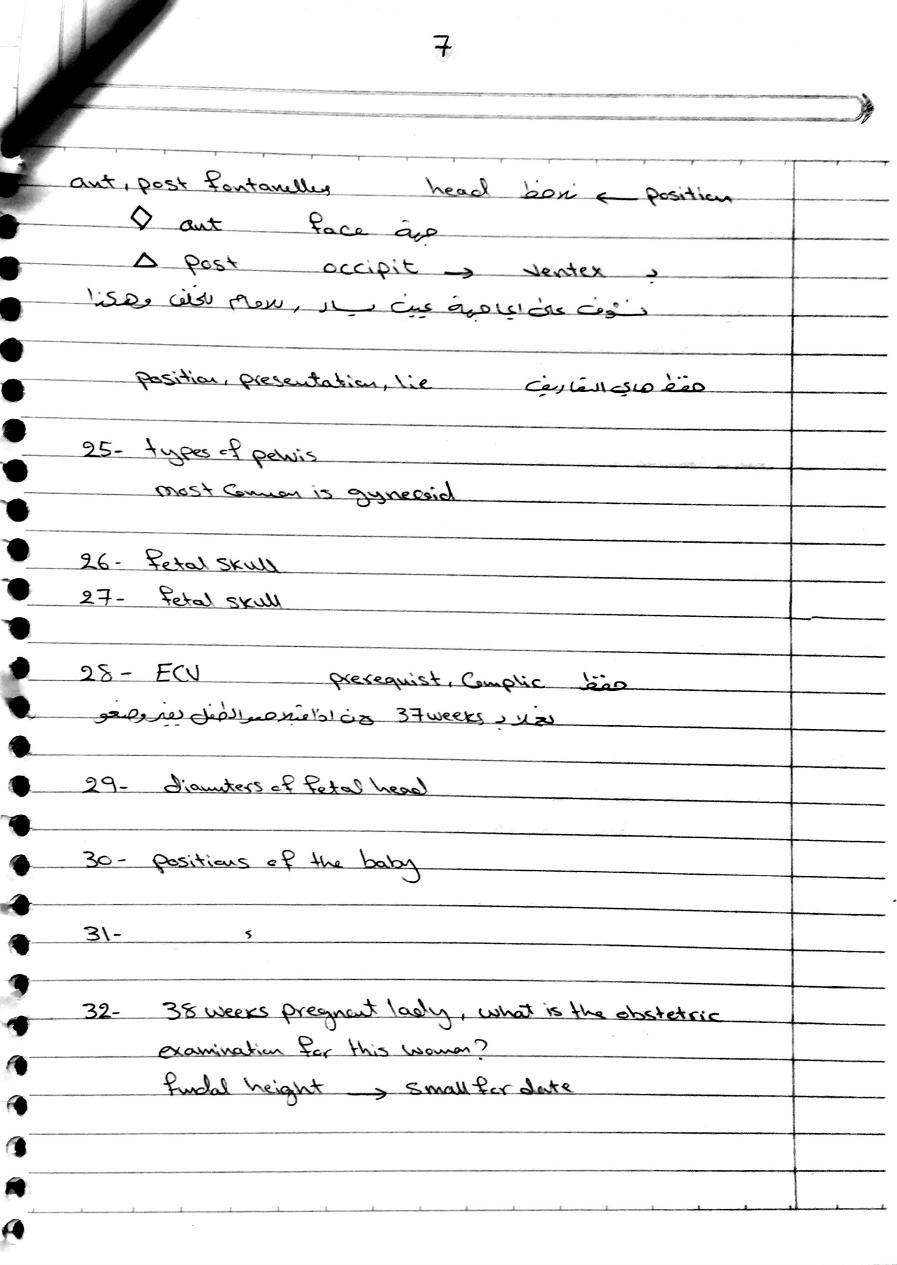 7
ant, post fontanelles head نوضع ← position
◇ ant face جهة
△ post occipit → ventex بـ
نشوف على اي جهة يمين يسار, للامام للخلف وهكذا
position, presentation, lie حفظ هاي التعاريف
25- types of pelvis
most common is gynecoid
26- fetal skull
27- fetal skull
28- ECV prerequist, Complic حفظ
37 weeks
29- diamters of fetal head
30- positions of the baby
31- ؟
32- 38 weeks pregnant lady, what is the obstetric
examination for this woman?
fundal height → small for date